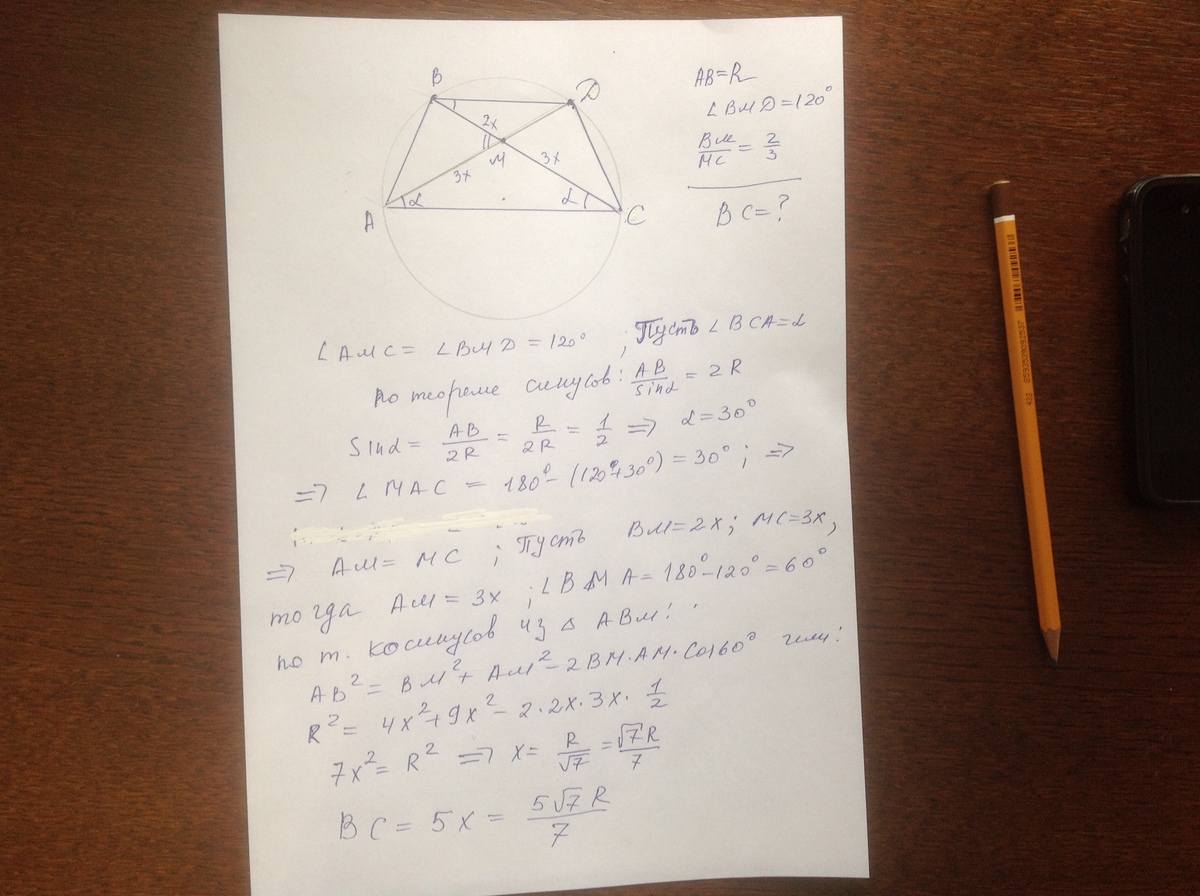 B
D
2x
M
3x
3x
A
α
α
C
AB=R
∠BMD=120°
BM/MC = 2/3
BC=?
∠AMC = ∠BMD = 120° ; Пусть ∠BCA=α
по теореме синусов: AB/sinα = 2R
Sinα = AB/2R = R/2R = 1/2 => α=30°
=> ∠MAC = 180°-(120°+30°) = 30° ; =>
=> AM = MC ; Пусть BM=2x; MC=3x,
тогда AM = 3x ; ∠BMA=180°-120°=60°
по т. косинусов из △ ABM:
AB² = BM² + AM² - 2BM·AM·Cos60° или:
R² = 4x²+9x² - 2·2x·3x· 1/2
7x² = R² => x = R/√7 = √7R/7
BC = 5x = 5√7R/7